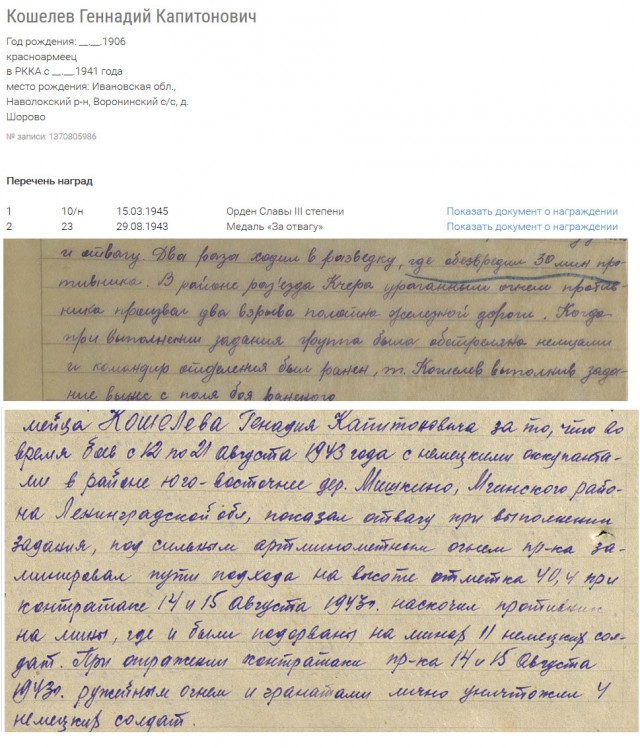 Кошелев Геннадий Капитонович
Год рождения: __.__.1906
красноармеец
в РККА с __.__.1941 года
место рождения: Ивановская обл.,
Наволокский р-н, Воронинский с/с, д.
Шорово
№ записи: 1370805986
Перечень наград
1 10/н 15.03.1945 Орден Славы III степени Показать документ о награждении
2 23 29.08.1943 Медаль «За отвагу» Показать документ о награждении
и отвагу. Два раза ходил в разведку, где обезвредил 30 мин про-
тивника. В районе раз'езда Кчера ураганным огнем против-
ника произвел два взрыва полотна железной дороги. Когда
при выполнении задания группа была обстреляна немцами
и командир отделения был ранен, т. Кошелев выполнив зада-
ние вынес с поля боя раненого
мейца Кошелева Генадия Капитоновича за то, что во
время боев с 12 по 21 августа 1943 года с немецкими оккупанта-
ми в районе юго-восточнее дер. Мишкино, Мгинского райо-
на Ленинградской обл, показал отвагу при выполнении
задания, под сильным артминометным огнем пр-ка за-
минировал пути подхода на высоте отметка 40,4 при
контратаке 14 и 15 августа 1943г. наскочил противник
на мины, где и были подорваны на минах 11 немецких сол-
дат. При отражении контратаки пр-ка 14 и 15 Августа
1943г. ружейным огнем и гранатами лично уничтожил 4
немецких солдат.